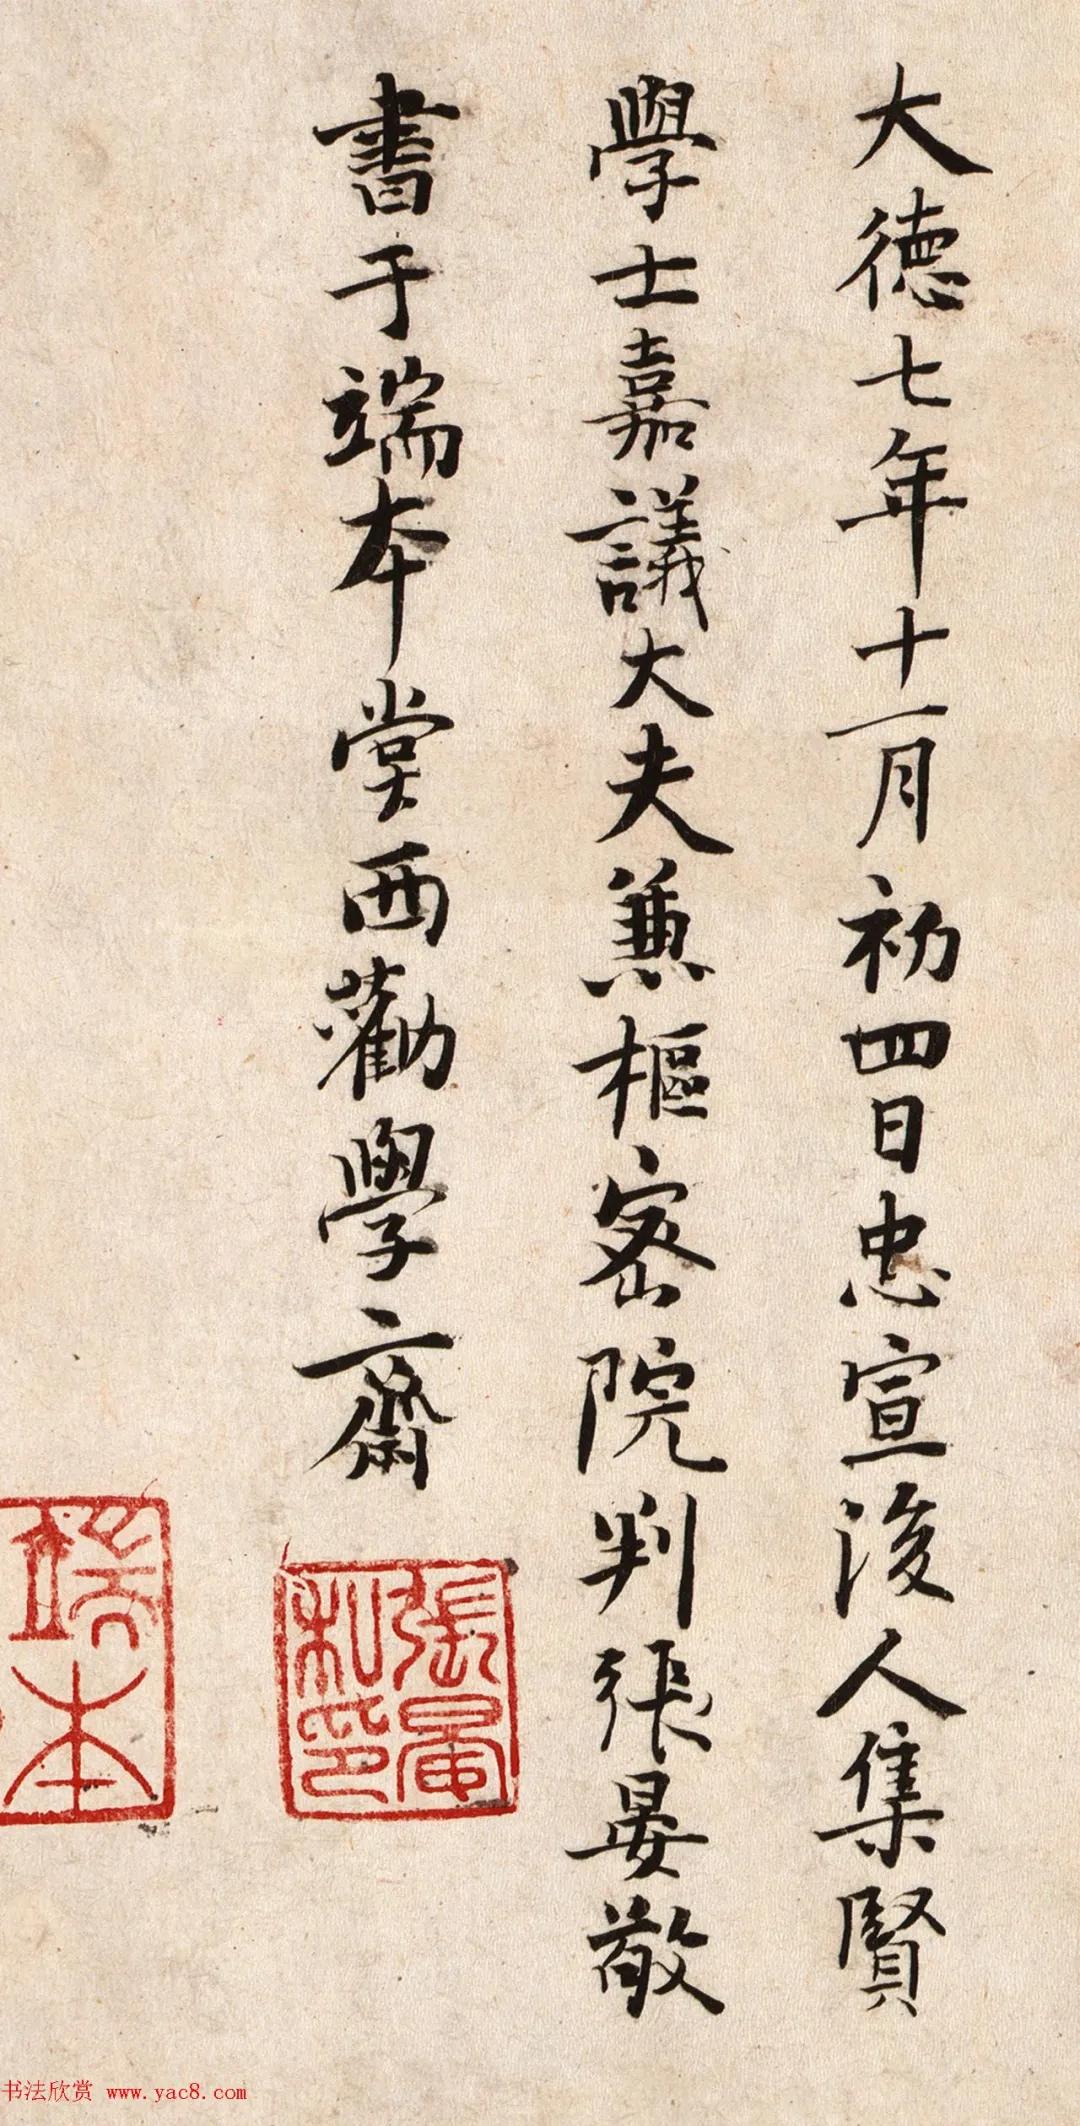 大德七年十一月初四日忠宣後人集賢
學士嘉議大夫兼樞密院判張晏敬
書于端本堂西勸學齋
張晏
私印
端本
书法欣赏 www.yac8.com